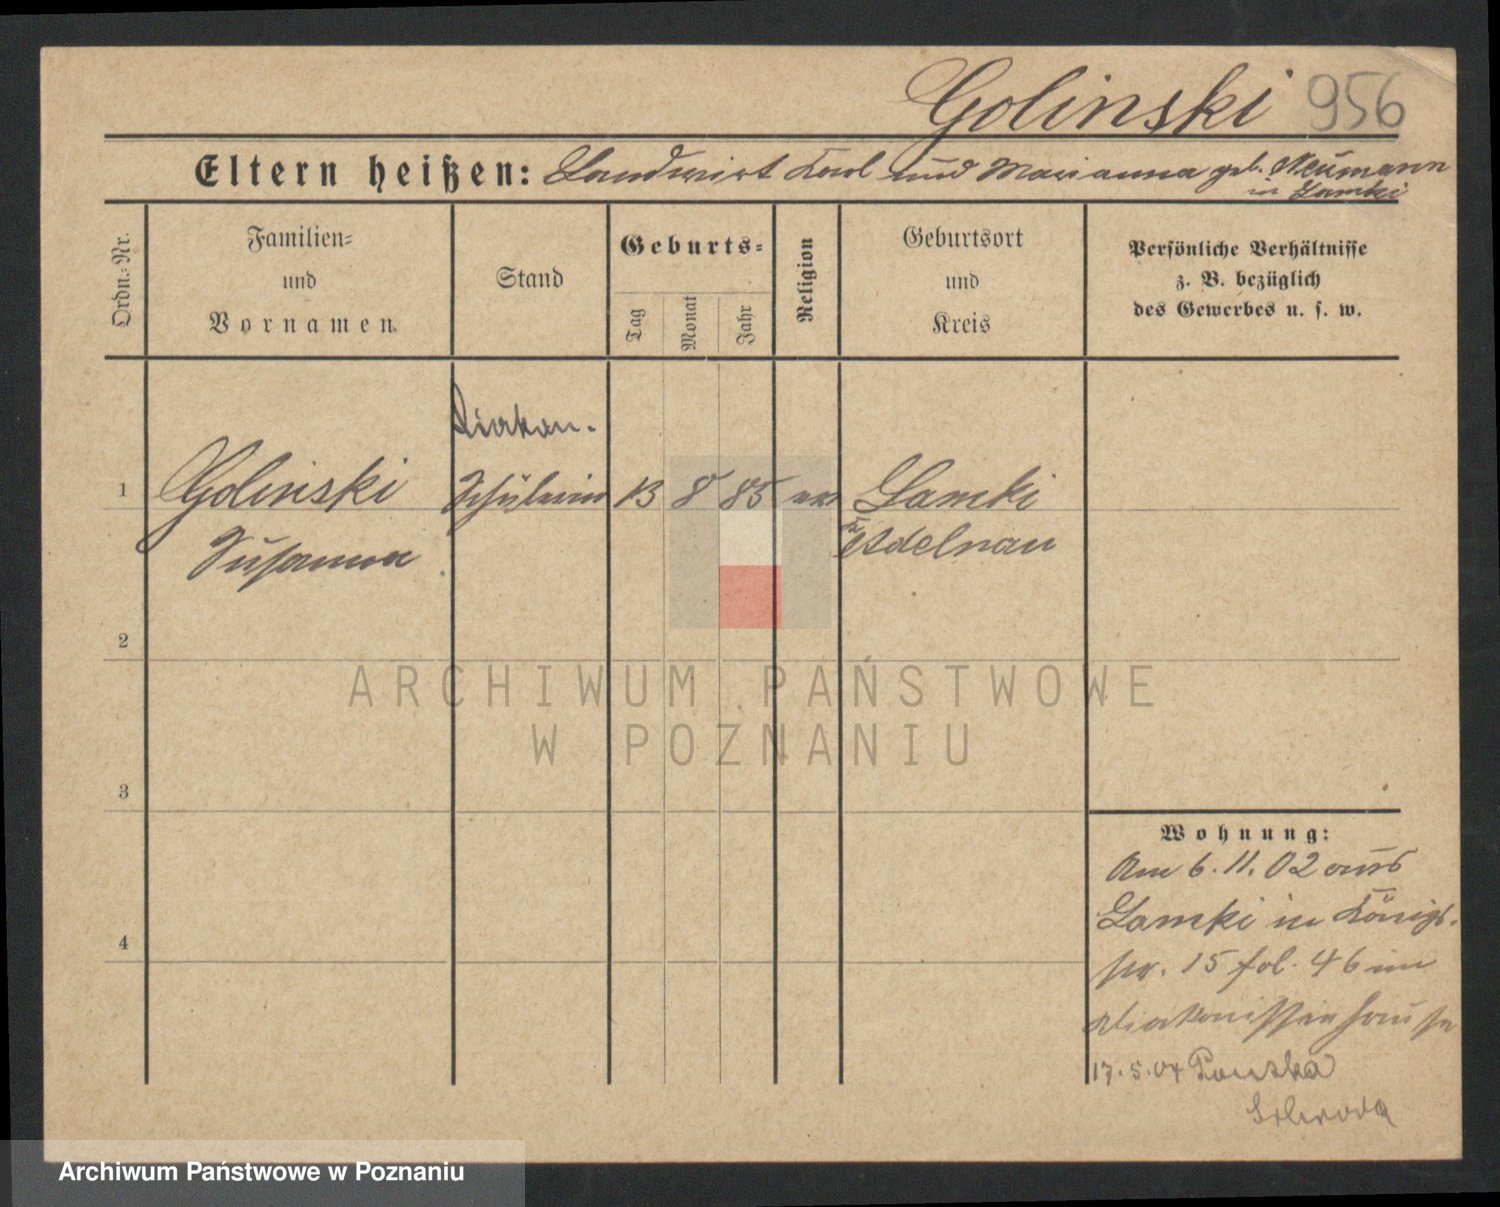 Golinski 956
Eltern heißen: Landwirt Karl und Marianna geb. Neumann
in Lamki
Ordn.-Nr.
Familien-
und
Vornamen
Stand
Geburts-
Tag
Monat
Jahr
Religion
Geburtsort
und
Kreis
Persönliche Verhältnisse
z. B. bezüglich
des Gewerbes u. s. w.
Diakon.
1 Golinski Schülerin 13 8 85 ev Lamki
Susanna Adelnau
2
ARCHIWUM PAŃSTWOWE
W POZNANIU
3
Wohnung:
Am 6.11.02 aus
Lamki in Königs-
str. 15 fol. 46 im
Diakonissenhause
4
17.5.04
Archiwum Państwowe w Poznaniu